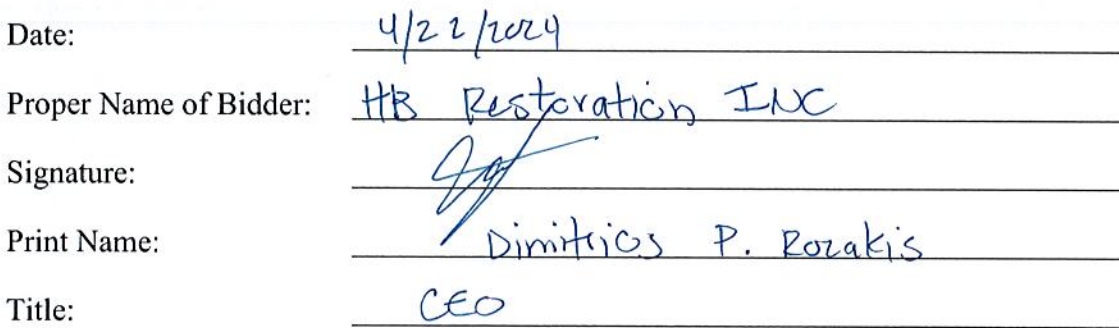 Date: 4/22/2024
Proper Name of Bidder: HB Restoration INC
Signature:
Print Name: Dimitrios P. Rozakis
Title: CEO